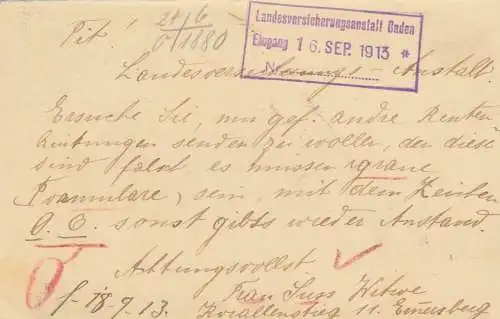 Tit!
21/6
6/1880
Landesversicherungsanstalt Baden
Eingang 16. SEP. 1913 *
N
Landesversicherungs-Anstalt.
Ersuche Sie, mir gef. andre Renten-
quittungen senden zu wollen, den diese
sind falsch es müssen graue
Formulare sein, mit dem Zeichen
O. O. sonst gibts wieder Anstand.
Achtungsvollst.
18 9 13.
Frau Suss Witwe
11. Emersberg